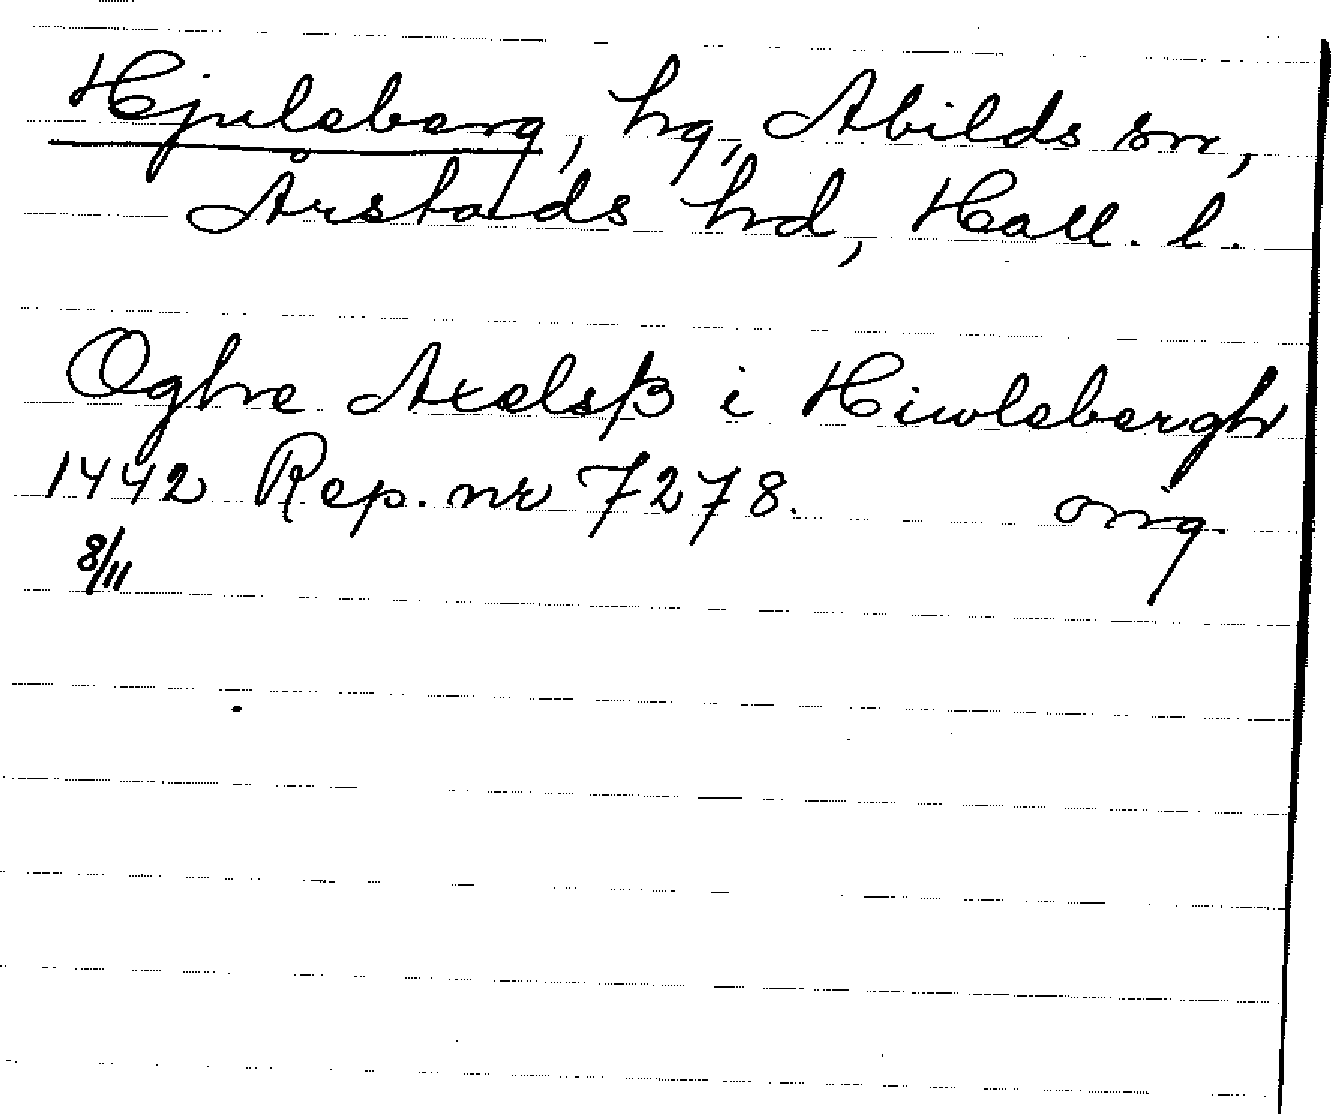 Hjuleberg, hg, Abilds sn,
Årstads hd, Hall. l.
Oghe Axelsß i Hiwlebergh
1442 Rep. nr 7278. orig.
8/11